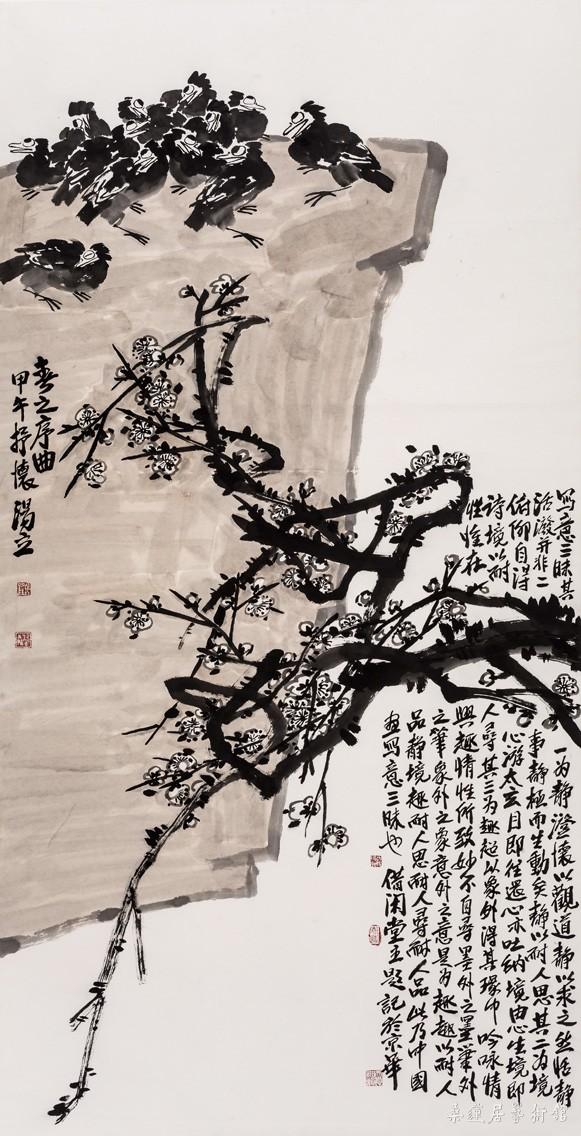 春之序曲
甲午抒懷 湯立
写意三昧其一为静澄懷以觀道静以求之然恬静
活潑并非二事静極而生動矣静以耐人思其二为境
俯仰自得心游太玄目即往還心亦吐纳境由心生境即
诗境以耐人尋其三为趣趣以象外得其環中吟咏情
性恰在興趣情性所致妙不自尋墨外之墨筆外
之筆象外之象意外之意是为趣趣以耐人
品静境趣耐人思耐人尋耐人品此乃中國
画写意三昧也 借闲堂主题記於京華
桑蓮居藝術館